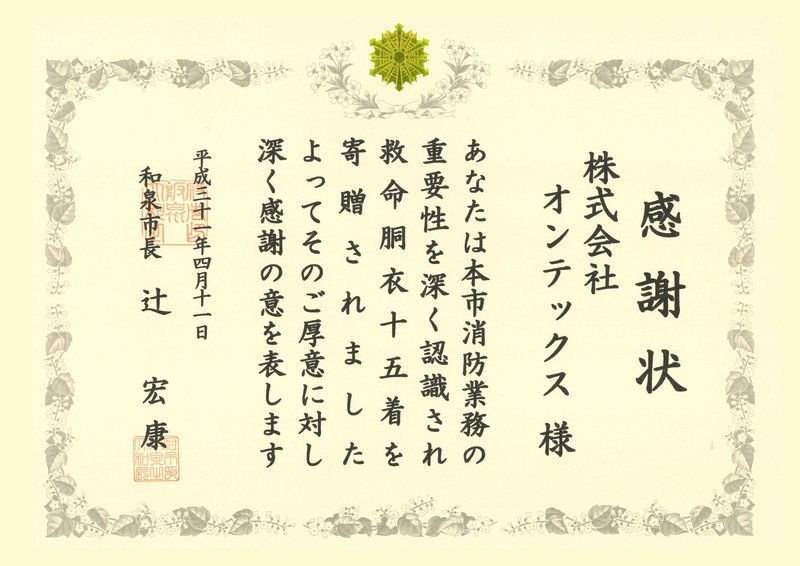 感謝状
株式会社
オンテックス 様
あなたは本市消防業務の
重要性を深く認識され
救命胴衣十五着を
寄贈されました
よってそのご厚意に対し
深く感謝の意を表します
平成三十一年四月十一日
和泉市長 辻 宏康